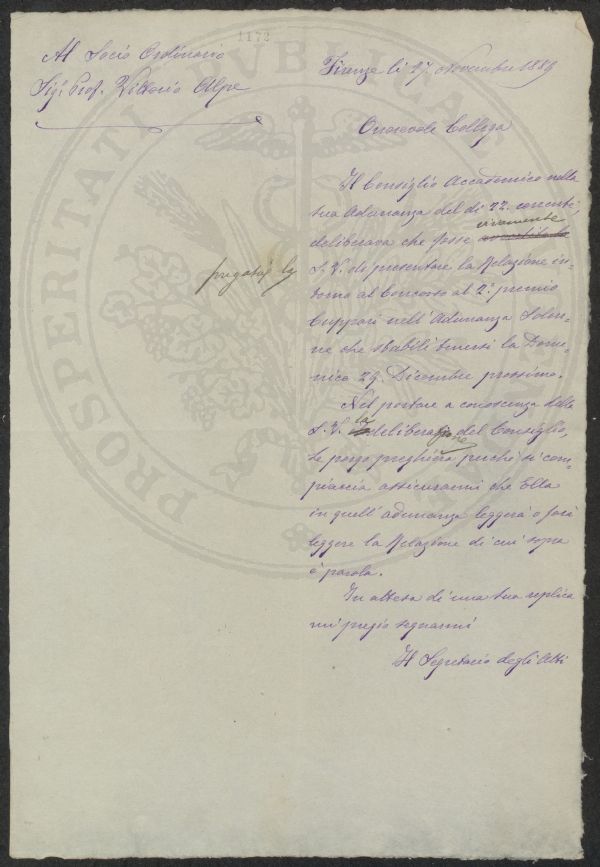 1172
Al Socio Ordinario
Sigr. Prof. Vittorio Alpe
Firenze li 27. Novembre 1889
Onorevole Collega
Il Consiglio Accademico nella
sua Adunanza del dì 22. corrente,
vivamente
deliberava che fosse
pregata la
S. V. di presentare la Relazione in-
torno al Concorso al 2º. premio
Cuppari nell'Adunanza Solen-
ne che stabilì tenersi la Dome-
nica 29. Dicembre prossimo.
Nel portare a conoscenza della
S. V. la deliberazione del Consiglio,
Le porgo preghiera perché si com-
piaccia assicurarmi che Ella
in quell'adunanza leggerà o farà
leggere la Relazione di cui sopra
è parola.
In attesa di una sua replica
mi pregio segnarmi
Il Segretario degli Atti
PROSPERITATI PUBLICAE